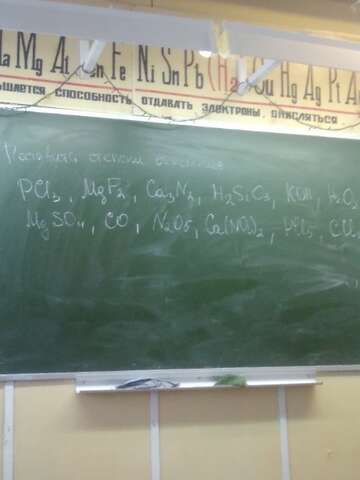 a Mg Al Zn Fe Ni Sn Pb (H2) Cu Hg Ag Pt A
ЫШАЕТСЯ СПОСОБНОСТЬ ОТДАВАТЬ ЭЛЕКТРОНЫ, ОКИСЛЯТЬСЯ
Расставить степени окисления
PCl3, MgF2, Ca3N2, H2SiO3, KOH,
MgSO4, CO, N2O5, Ca(NO3)2,